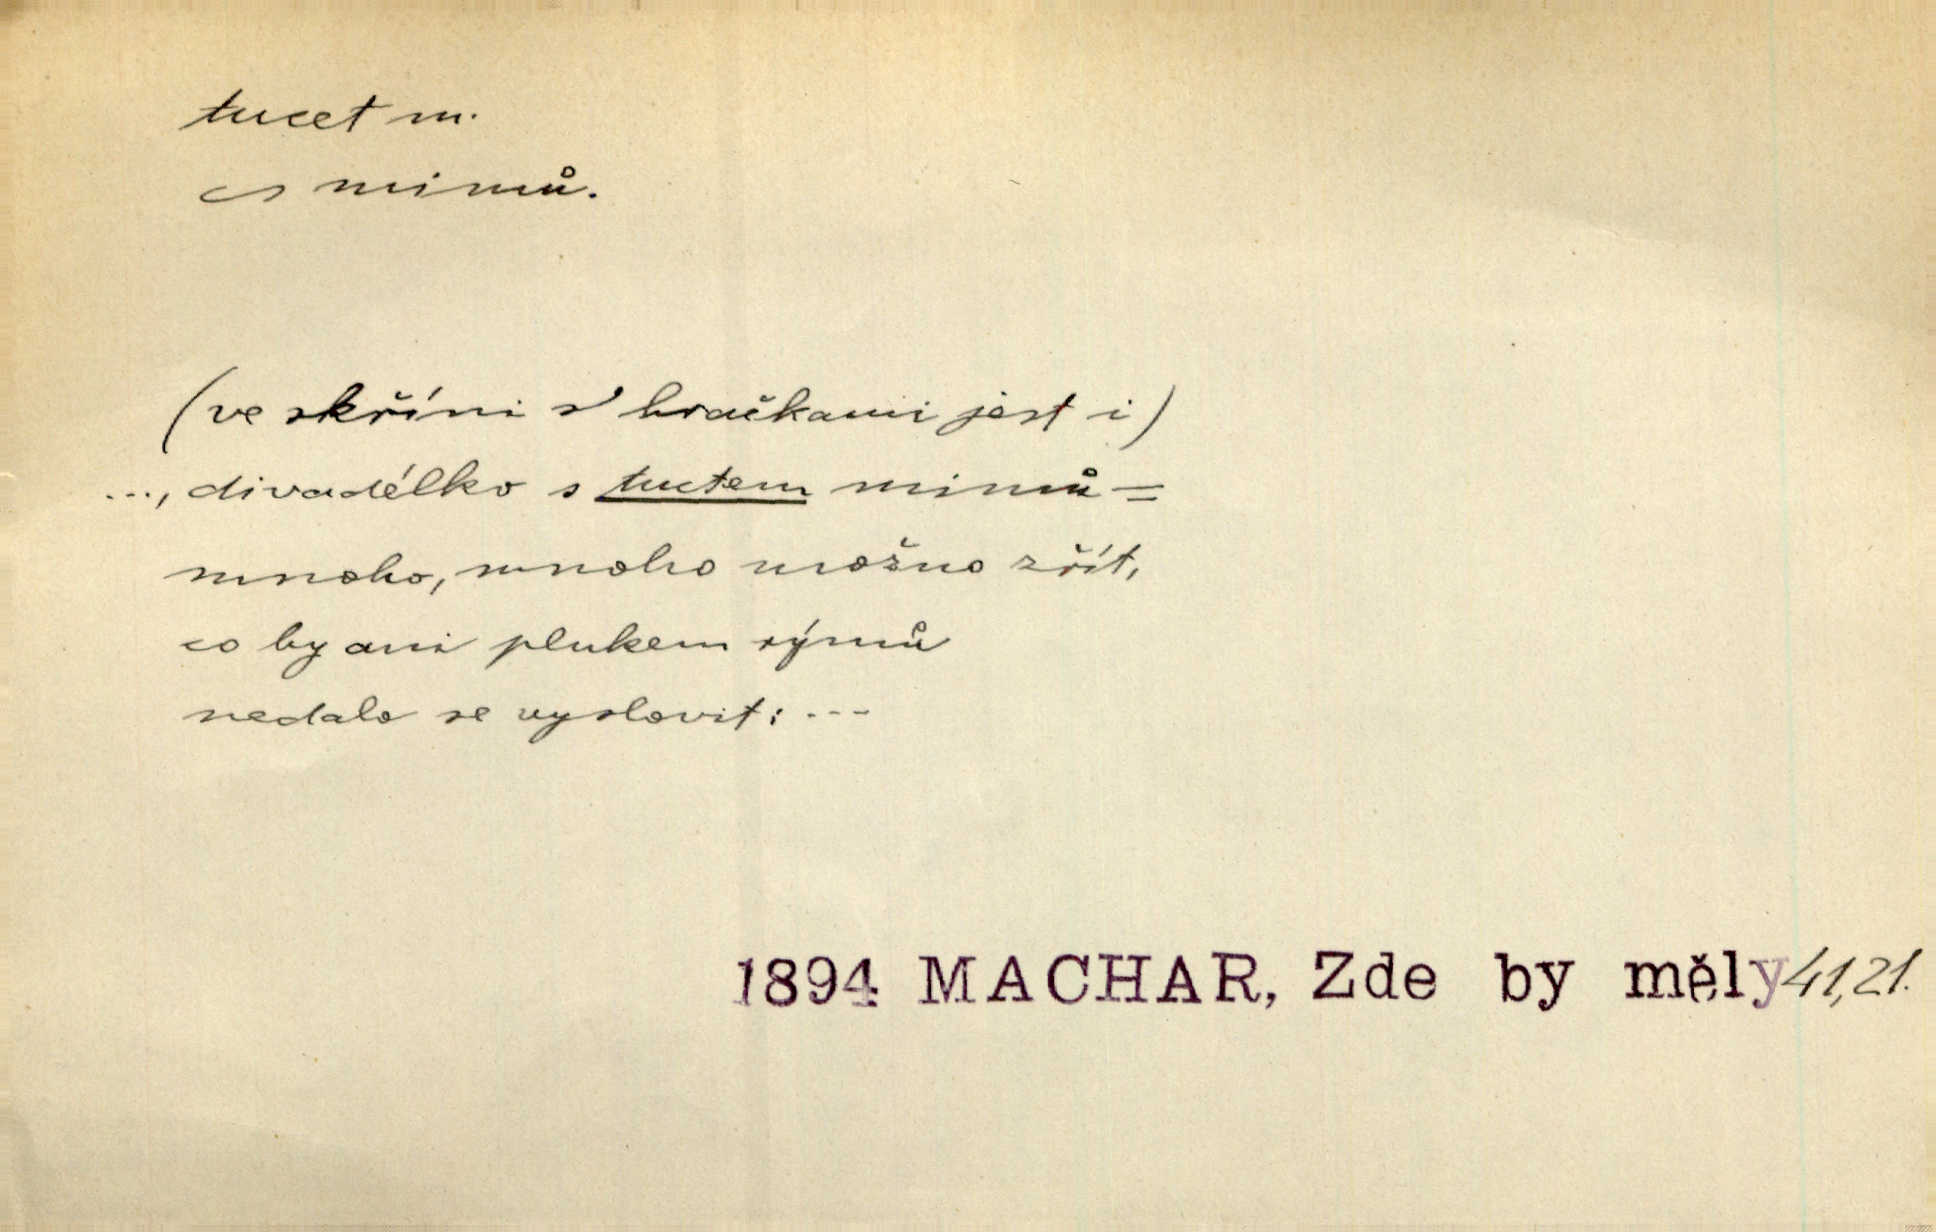 tucet m.
~ mimů.
(ve skříni s hračkami jest i)
..., divadélko s tuctem mimů =
mnoho, mnoho možno zřít,
co by ani plukem rýmů
nedalo se vyslovit: ---
1894 MACHAR, Zde by měly 41,21.